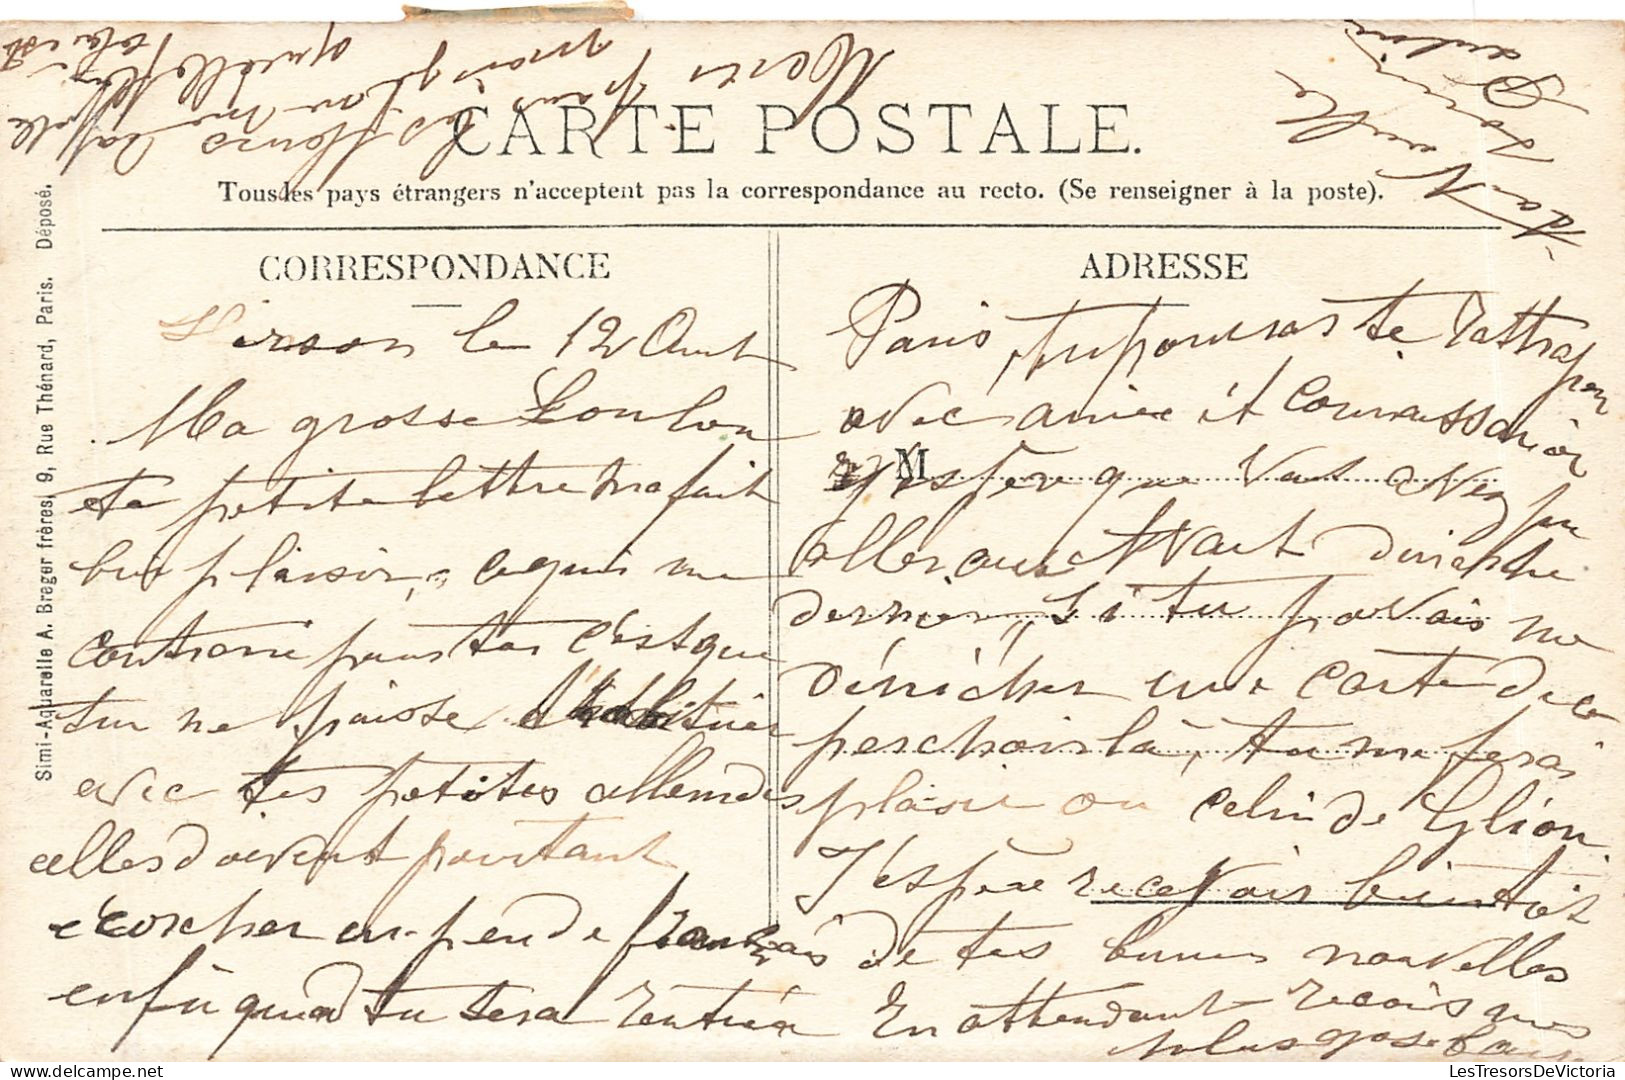 CARTE POSTALE.
Tous les pays étrangers n'acceptent pas la correspondance au recto. (Se renseigner à la poste).
CORRESPONDANCE
ADRESSE
M
Simi-Aquarelle A. Breger frères, 9, Rue Thénard, Paris. Déposé.
Hirson le 12 Aout
Ma grosse Loulou
ta petite lettre ma fait
bien plaisir, ce qui me
contrarie pour toi c'est que
tu ne puisse t'habituer
avec tes petites allemdes
elles doivent pourtant
écorcher un peu de français
enfin quand tu sera rentrée a
Paris, tu pourras te rattraper
avec amies et connaissances
j'espère que vous avez pu
aller aux Avant dimanche
dernier, si tu pouvais me
dénicher une carte de ce
perchoir là, tu me ferai
plaisir ou celui de Glion
J'espère recevoir bientôt
de tes bonnes nouvelles
En attendant recois mes
plus gros baisers
Ta Tante
Merci pour les fleurs
LesTresorsDeVictoria